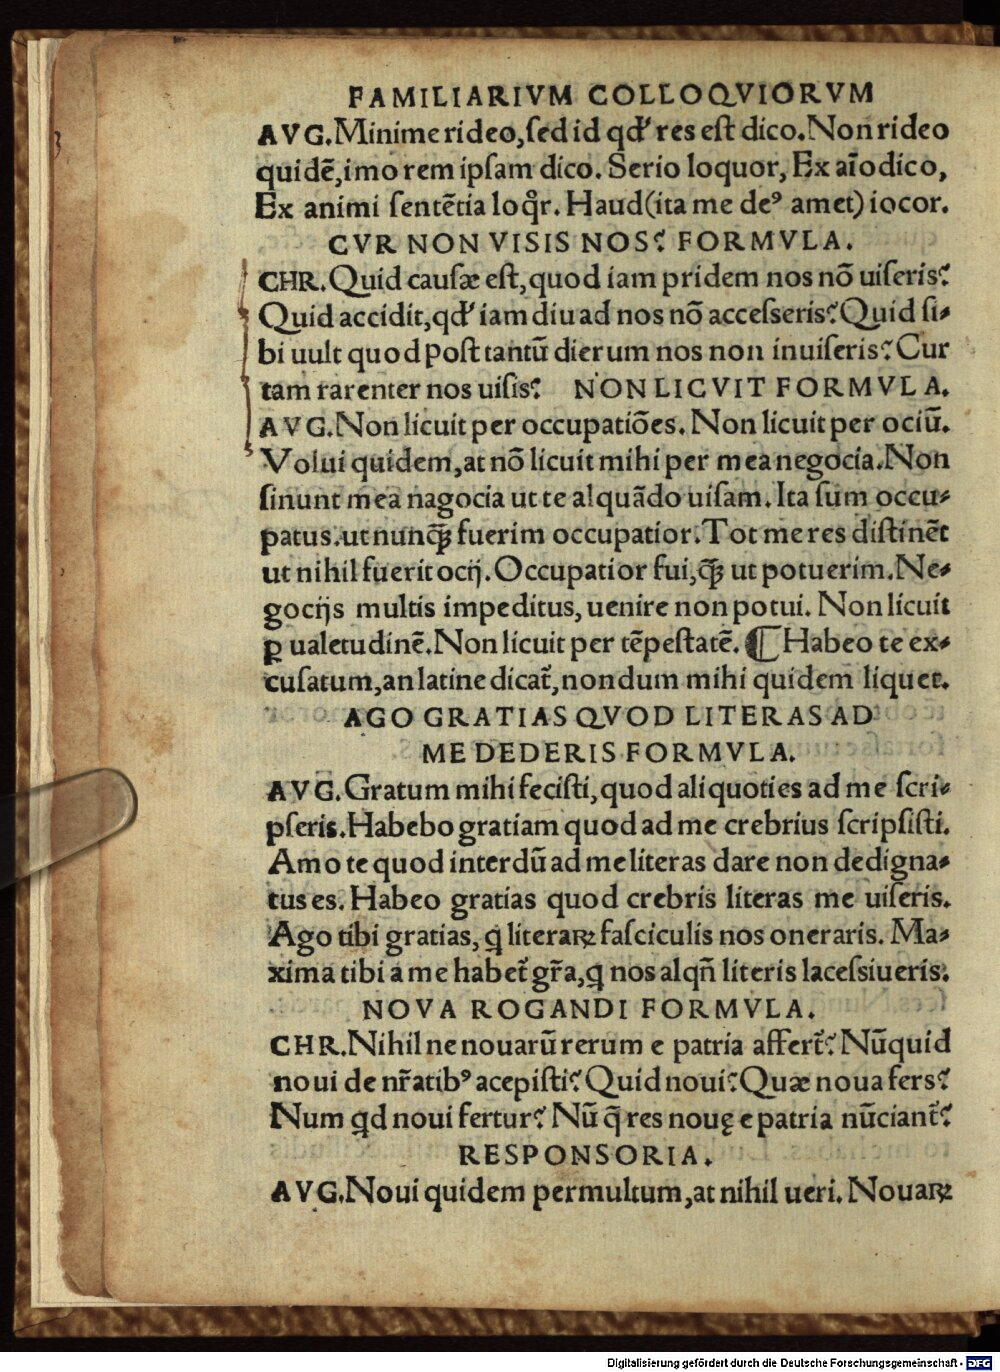 FAMILIARIVM COLLOQVIORVM
AVG.Minime rideo,ſed id qď res eſt dico.Non rideo
quidē,imo rem ipſam dico. Serio loquor, Ex aīo dico,
Ex animi ſentētia loqr̃. Haud(ita me deꝰ amet) iocor.
CVR NON VISIS NOS? FORMVLA.
CHR.Quid cauſæ eſt,quod iam pridem nos nō uiſeris?
Quid accidit,qď iam diu ad nos nō acceſſeris?Quid ſi⸗
bi uult quod poſt tantū dierum nos non inuiſeris?Cur
tam rarenter nos uiſis? NON LICVIT FORMVLA.
AVG.Non licuit per occupatiōes. Non licuit per ociū.
Volui quidem,at nō licuit mihi per mea negocia.Non
ſinunt mea nagocia ut te alquãdo uiſam. Ita ſum occu⸗
patus.ut nunꝙ̃ fuerim occupatior.Tot me res diſtinēt
ut nihil fuerit ocij.Occupatior fui,ꝙ̃ ut potuerim.Ne⸗
gocijs multis impeditus,uenire non potui. Non licuit
ꝑ ualetudinē.Non licuit per tēpeſtatē. ⸿Habeo te ex⸗
cuſatum,an latine dicat᷑,nondum mihi quidem liquet.
AGO GRATIAS QVOD LITERAS AD
ME DEDERIS FORMVLA.
AVG.Gratum mihi feciſti,quod aliquoties ad me ſcri⸗
pſeris.Habebo gratiam quod ad me crebrius ſcripſiſti.
Amo te quod interdū ad me literas dare non dedigna⸗
tus es. Habeo gratias quod crebris literas me uiſeris.
Ago tibi gratias, ꝗ literaꝝ faſciculis nos oneraris. Ma⸗
xima tibi a me habet᷑ gr̃a,ꝗ nos alqñ literis laceſsiueris.
NOVA ROGANDI FORMVLA.
CHR.Nihil ne nouarū rerum e patria affert᷑?Nūquid
noui de nr̃atibꝰ acepiſti?Quid noui?Quæ noua fers?
Num ꝗd noui fertur? Nū q̄ res nouę e patria nūciant᷑?
RESPONSORIA.
AVG.Noui quidem permultum,at nihil ueri. Nouaꝝ
Digitalisierung gefördert durch die Deutsche Forschungsgemeinschaft - DFG